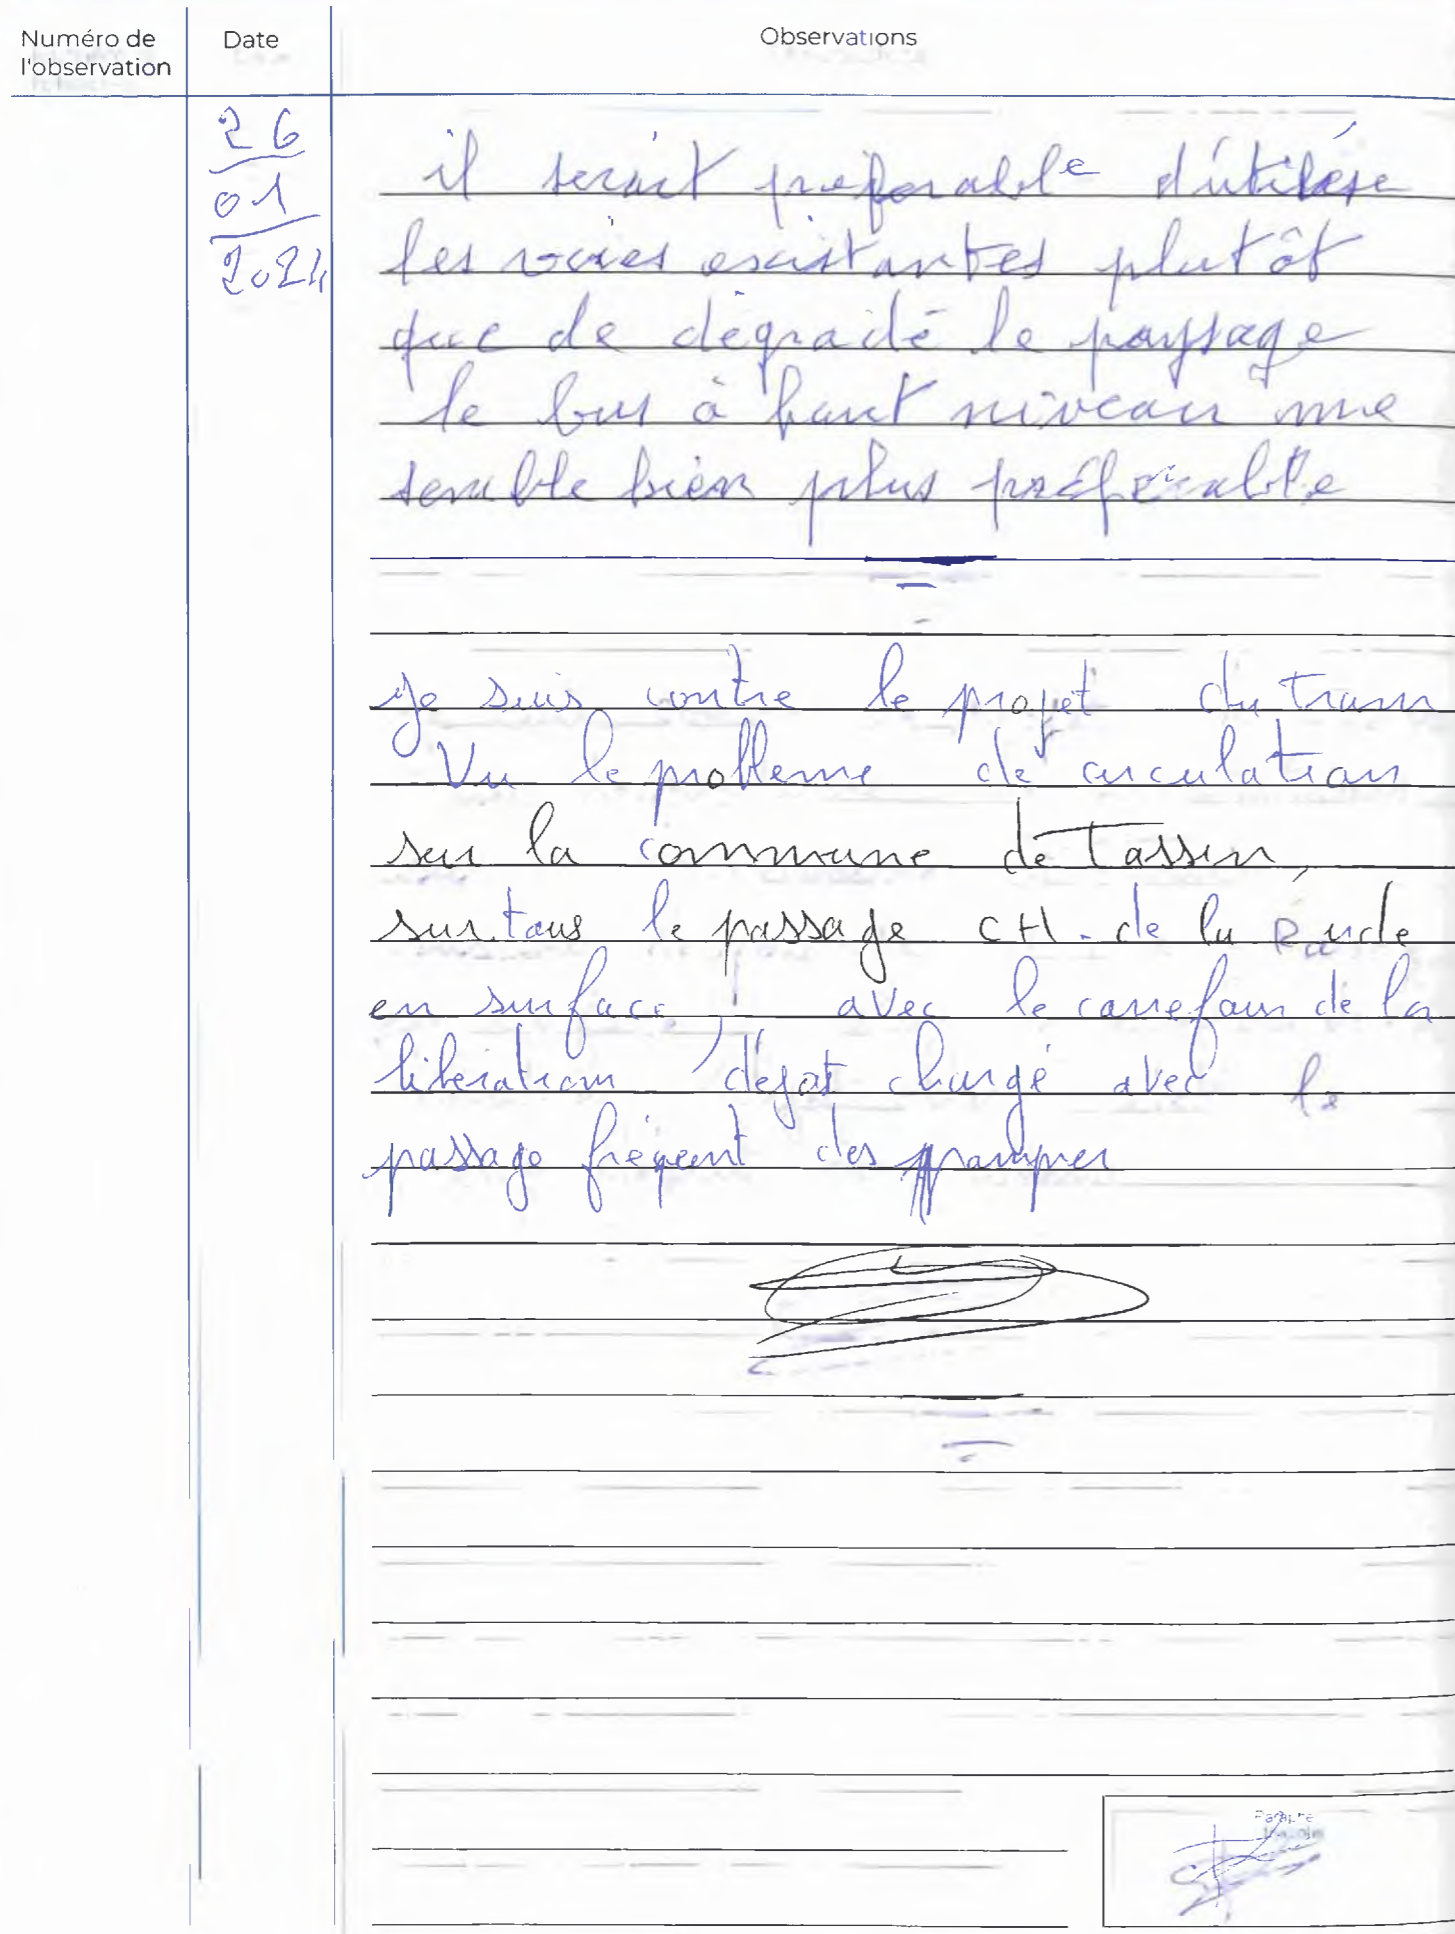 Numéro de
l'observation
Date
Observations
26
01
2024
il serait préferable d'utilise
les voies existantes plutôt
que de dégradé le paysage
le bus à haut niveau me
semble bien plus préférable
je suis contre le projet du tram
Vu le probleme de circulation
sur la commune de Tassin,
sur tous le passage CH. de la Raude
en surface, avec le carrefour de la
libération déjat chargé avec le
passage fréqent des pompier
Paraphe